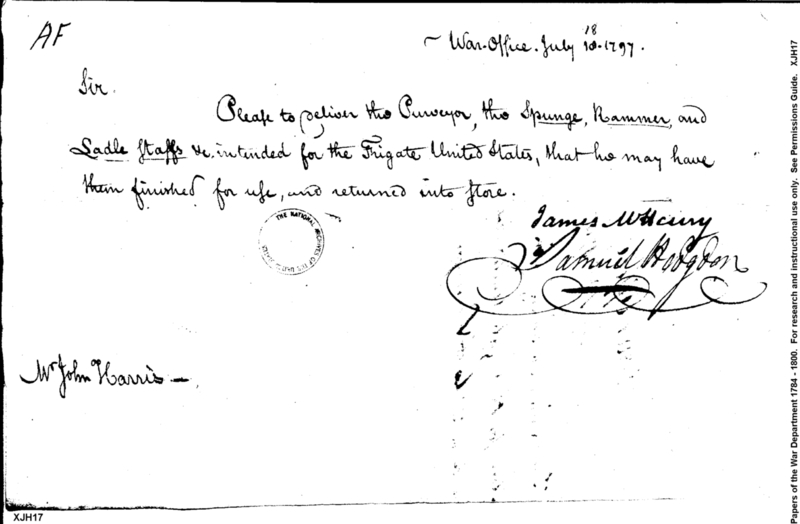 AF
War-Office. July 18 1797.
Sir.
Please to deliver the Purveyor, the Spunge, Rammer, and
Ladle Staffs &c, intended for the Frigate United States, that he may have
them finished for use, and returned into Store.
James McHenry
Samuel Hodgdon
THE NATIONAL ARCHIVES OF THE UNITED STATES
Mr John Harris —
XJH17
Papers of the War Department 1784 - 1800. For research and instructional use only. See Permissions Guide. XJH17